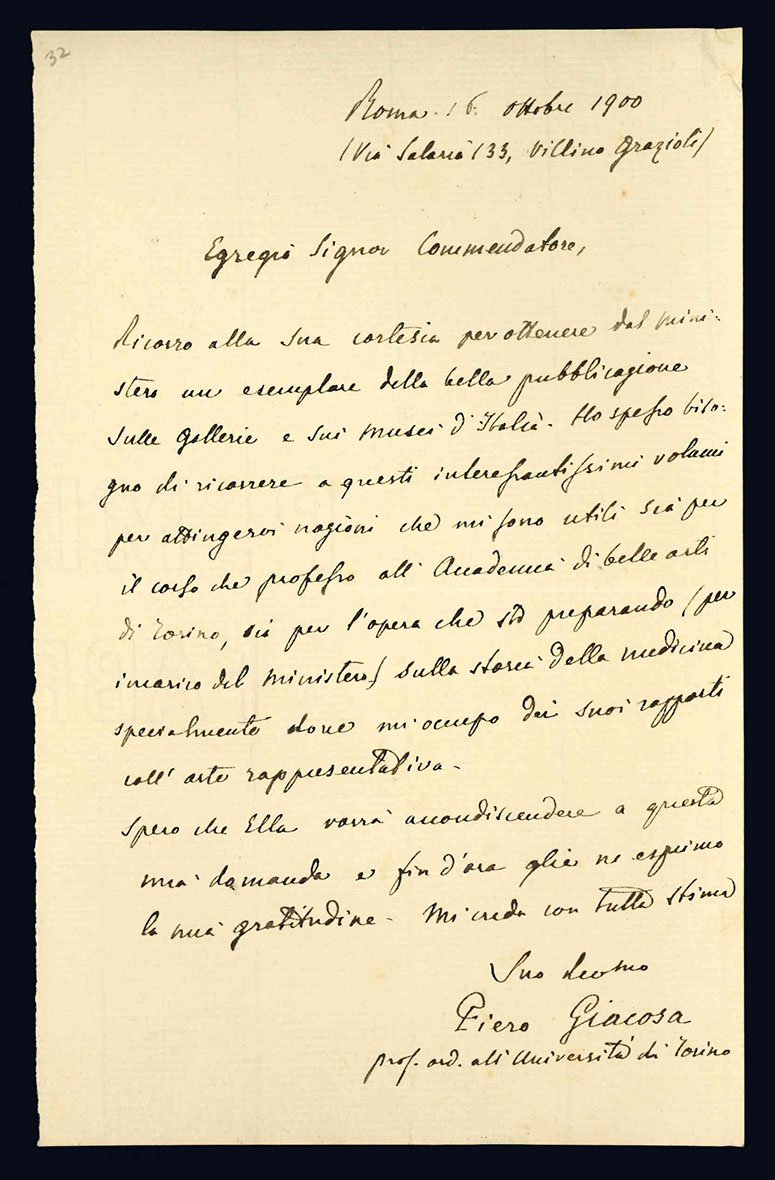 32
Roma. 16. Ottobre 1900
(Via Salaria 133, Villino Grazioli)
Egregio Signor Commendatore,
Ricorro alla sua cortesia per ottenere dal Mini-
stero un esemplare della bella pubblicazione
sulle Gallerie e sui Musei d'Italia. Ho spesso biso-
gno di ricorrere a questi interessantissimi volumi
per attingervi nozioni che mi sono utili sia per
il corso che professo all' Accademia di belle arti
di Torino, sia per l'opera che sto preparando (per
incarico del Ministero) sulla storia della medicina
specialmente dove mi occupo dei suoi rapporti
coll' arte rappresentativa.
Spero che Ella vorrà accondiscendere a questa
mia domanda e fin d'ora glie ne esprimo
la mia gratitudine. Mi creda con tutta stima
Suo devmo
Piero Giacosa
prof. ord. all'Università di Torino